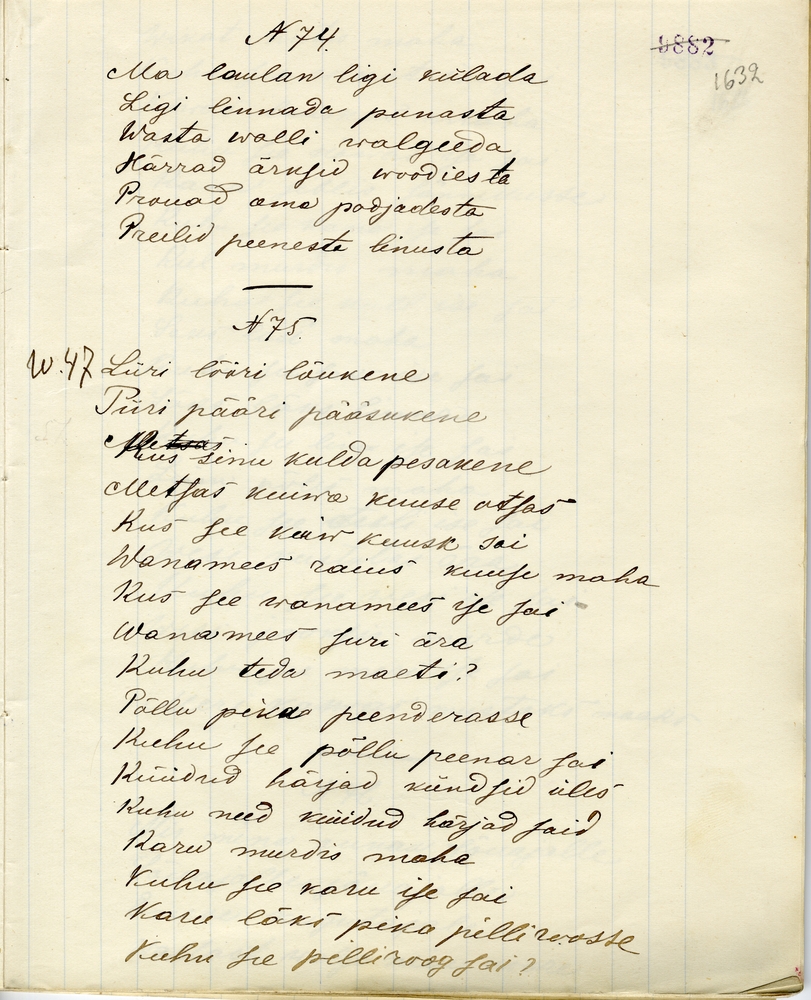 N 74.
9882
1632
Ma laulan ligi külada
Ligi linnada punasta
Wasta walli walgeeda
Härrad ärksid woodiesta
Prouad oma padjadesta
Preilid peeneste linusta
N 75.
W. 47 Liiri lööri lõukene
Piiri pääri pääsukene
Metsas
Kus sinu kulda pesakene
Metsas kuiwa kuuse otsas
Kus see kuiw kuusk sai
Wanamees raius kuuse maha
Kus see wanamees ise sai
Wanamees suri ära
Kuhu teda maeti?
Põllu pika peenderasse
Kuhu see põllu peenar sai
Küüdud härjad kündsid üles
Kuhu need küüdud härjad said
Karu murdis maha
Kuhu see karu ise sai
Karu läks pika pilliroosse
Kuhu se pilliroog sai?